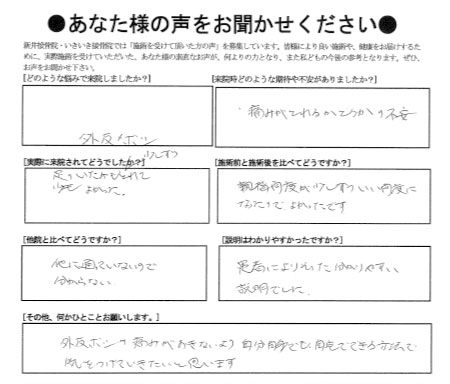 ●あなた様の声をお聞かせください●
新井接骨院・いきいき接骨院では「施術を受けて頂いた方の声」を募集しています。皆様により良い施術や、健康をお届けするた
めに、実際施術を受けていただいた、あなた様の直直なお声が、何よりの力となり、また私どもの今後の参考となります。ぜひ、
お声をお聞かせ下さい。
[どのような悩みで来院しましたか?]
外反ボシ
[来院時どのような期待や不安がありましたか?]
痛みがとれるかどうかの不安
[実際に来院されてどうでしたか?]
少しずつ
足の いたみがとれて
よかった。
[施術前と施術後を比べてどうですか?]
親指角度が少しずついい角度に
なおってよかったです
[他院と比べてどうですか?]
他に通っていないので
分からない
[説明はわかりやすかったですか?]
患者によりそった分かりやすい
説明でした。
[その他、何かひとことお願いします。]
外反ボシの痛みがおきないよう自分自身でも できる方法で
気をつけていきたいと思います